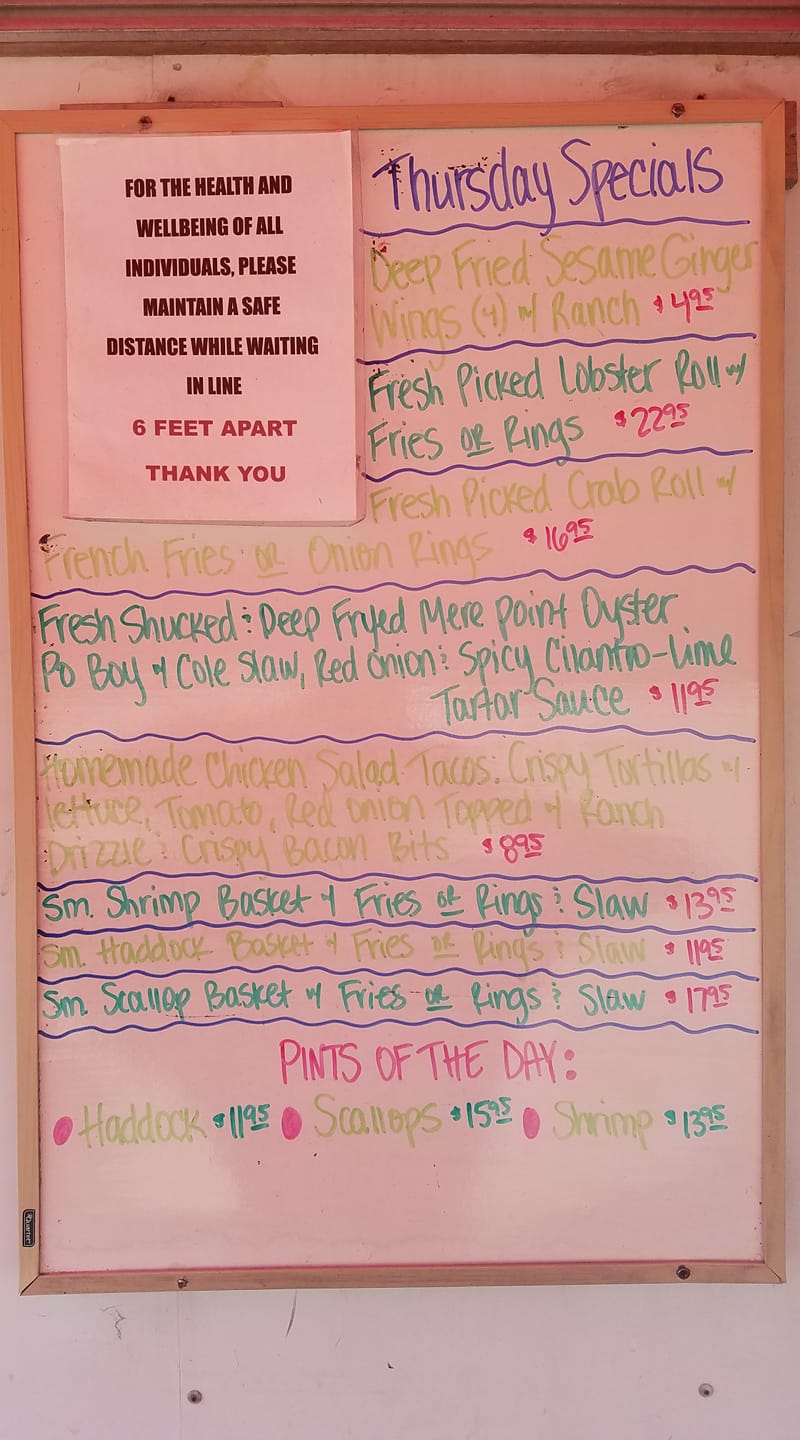 FOR THE HEALTH AND
WELLBEING OF ALL
INDIVIDUALS, PLEASE
MAINTAIN A SAFE
DISTANCE WHILE WAITING
IN LINE
6 FEET APART
THANK YOU
Thursday Specials
Deep Fried Sesame Ginger
Wings (4) w/ Ranch $4.95
Fresh Picked Lobster Roll w/
Fries OR Rings $22.95
Fresh Picked Crab Roll w/
French Fries OR Onion Rings $16.95
Fresh Shucked & Deep Fryed Mere Point Oyster
Po Boy w/ Cole Slaw, Red Onion & Spicy Cilantro-Lime
Tartar Sauce $11.95
Homemade Chicken Salad Tacos: Crispy Tortillas w/
lettuce, Tomato, Red Onion Topped w/ Ranch
Drizzle & Crispy Bacon Bits $8.95
Sm. Shrimp Basket w/ Fries OR Rings & Slaw $13.95
Sm. Haddock Basket w/ Fries OR Rings & Slaw $11.95
Sm. Scallop Basket w/ Fries OR Rings & Slaw $17.95
PINTS OF THE DAY:
Haddock $11.95 Scallops $15.95 Shrimp $13.95
Quartet